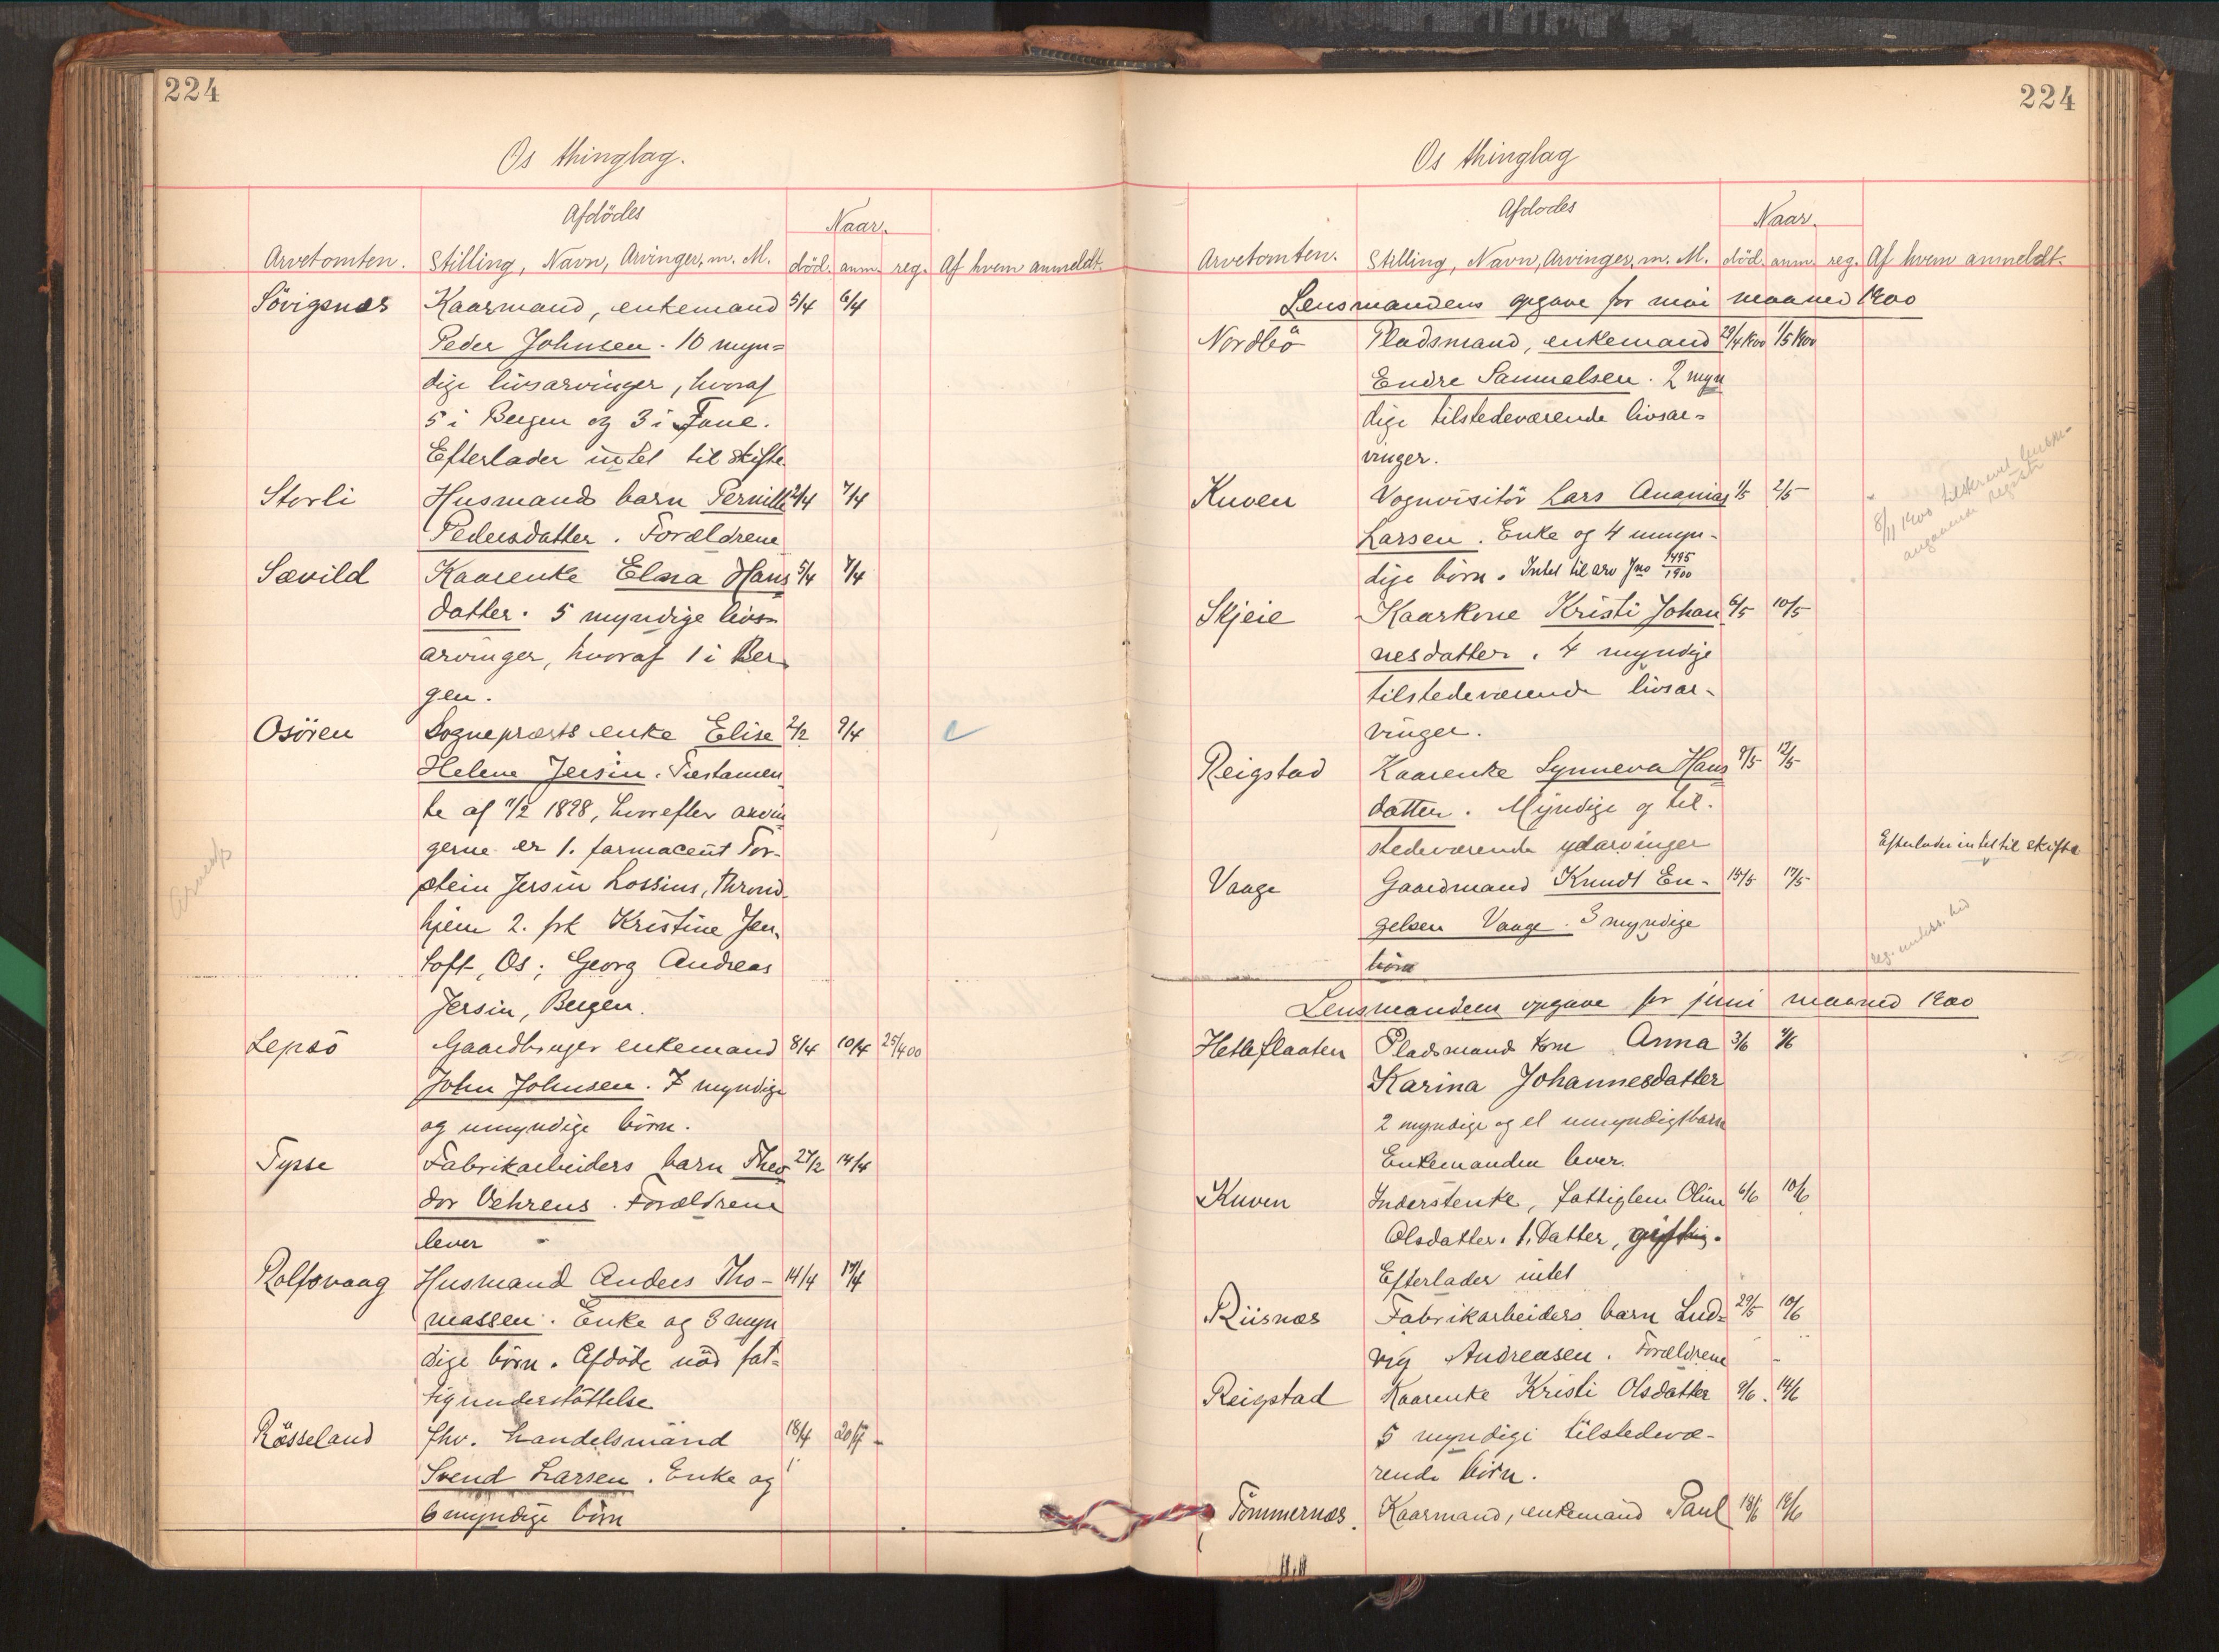 224
Os thinglag.
Afdödes
Naar.
Arvetomten. Stilling, Navn, Arvinger, m. M. död. anm. reg. Af hvem anmeldt.
Sövigsnæs Kaarmand, enkemand 5/4 6/4
Peder Johnsen. 10 myn=
dige livsarvinger, hvoraf
5 i Bergen og 3 i Fane.
Efterlader intet til skifte.
Storli Husmands barn Pernille 2/4 7/4
Pedersdatter. Forældrene
Sævild Kaarenke Elna Hans 5/4 7/4
datter. 5 myndige livs=
arvinger, hvoraf 1 i Ber
gen.
Osören Sogneprærsts enke Elise 2/2 9/4
Helene Jersin. Testamen
te af 7/2 1898, hvorefter arvin
gerne er 1. farmaceut Tor-
stein Jersin Lossius, Thrond-
hjem 2. frk Kristine Jen-
toft, Os; Georg Andreas
Jersin, Bergen.
Lepsö Gaardbruger enkemand 8/4 10/4 25/4 00
John Johnsen. 7 myndige
og umyndige börn.
Tysse Fabrikarbeiders barn Theo 27/2 14/4
dor Vehrens. Forældrene
lever
Rolfsvaag Husmand Anders Tho- 14/4 17/4
massen. Enke og 3 myn
dige börn. Afdöde nöd fat=
tigunderstöttelse
Rösseland fhv. Landelsmand 18/4 20/4 -
Svend Larsen. Enke og
6 myndige börn
224
Os thinglag
Afdodes
Naar.
Arvetomten. Stilling, Navn, Arvinger, m. M. död. anm. reg. Af hvem anmeldt.
Lensmandens opgave for mai maaned 1900
Nordbö Pladsmand, enkemand 29/4 1900 1/5 1900
Endre Samuelsen. 2 myn
dige tilstedeværende livsar=
vinger.
Kuven Vognvisitör Lars Ananias 1/5 2/5
Larsen. Enke og 4 umyn-
dige börn. Intet til arv Jno 1495/1900
8/11 1900 tilskrevet lensm-
angaaende registr
Skjeie Kaarkone Kristi Johan 6/5 10/5
nesdatter. 4 myndige
tilstedeværende livsar-
vinger.
Reigstad Kaarenke Synneva Hans 9/5 12/5
datter. Myndige og til-
stedeværende ydarvinger
Efterlader intet til skifte
Vaage Gaardmand Knudt En- 15/5 17/5
gelsen Vaage. 3 myndige
börn
Lensmandens opgave for juni maaned 1900
Hetleflaaten Pladsmands kone Anna 3/6 4/6
Karina Johannesdatter
2 myndige og et umyndigt barn
Enkemanden lever.
Kuven Inderstenke, fattiglem Oline 6/6 10/6
Olsdatter. 1. Datter,
Efterlader intet
Riisnæs Fabrikarbeiders barn Lud= 29/5 10/6
vig Andreasen. Forældrene
Reigstad Kaarenke Kristi Olsdatter 9/6. 14/6
5 myndige tilstedevæ-
rende börn.
Tömmernæs. Kaarmand, enkemand Paul 18/6 18/6